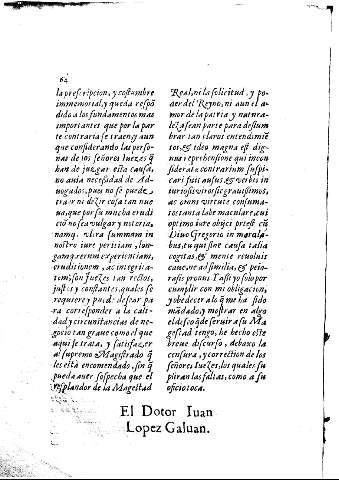 62
la prescripcion, y costumbre
immemorial, y queda respõ
dido a los fundamentos mas
importantes que por la par
te contraria se traen; y aun
que considerando las perso-
nas de los señores Iuezes q̃
han de juzgar esta causa,
no auia necesidad de Ad-
uogados, pues no se puede
traer ni dezir cosa tan nue
ua, que por su mucha erudi
ciõ no sea vulgar y notoria,
namq. vltra summam in
nostro iure peritiam, lon-
gamq. rerum experientiam,
eruditionem, ac integrita-
tem, son Iuezes tan rectos,
justos y constantes, quales se
requiere y puede desear pa
ra corresponder a la cali-
dad y circunstancias de ne-
gocio tan graue como el que
aqui se trata, y satisfazer
al supremo Magistrado q̃
les està encomendado, sin q̃
pueda auer sospecha que el
resplandor de la Magestad
Real, ni la solicitud, y po-
der del Reyno, ni aun el a-
mor de la patria y natura-
leza sean parte para deslum
brar tan claros entendimiẽ
tos, & ideo magna est dig-
nus reprehensione qui incon
siderate contrarium suspi-
cari fuit ausus, & verbis in
iuriosis viros sic grauissimos,
ac omni virtute consuma-
tos tanta labe maculare, cui
optimo iure obijci potest ciũ
Diuo Gregorio in morali-
bus, tu qui sine causa talia
cogitas, & mente reuoluis
caue, ne ad similia, & peio-
ra sis pronus. Y assi yo solo por
cumplir con mi obligacion,
y obedecer a lo q̃ me ha sido
mãdado, y mostrar en algo
el desseo q̃ de seruir a su Ma
gestad tengo, he hecho este
breue discurso, debaxo la
censura, y correction de los
señores Iuezes, los quales su
pliran las faltas, como a su
oficio toca.
El Dotor Iuan
Lopez Galuan.